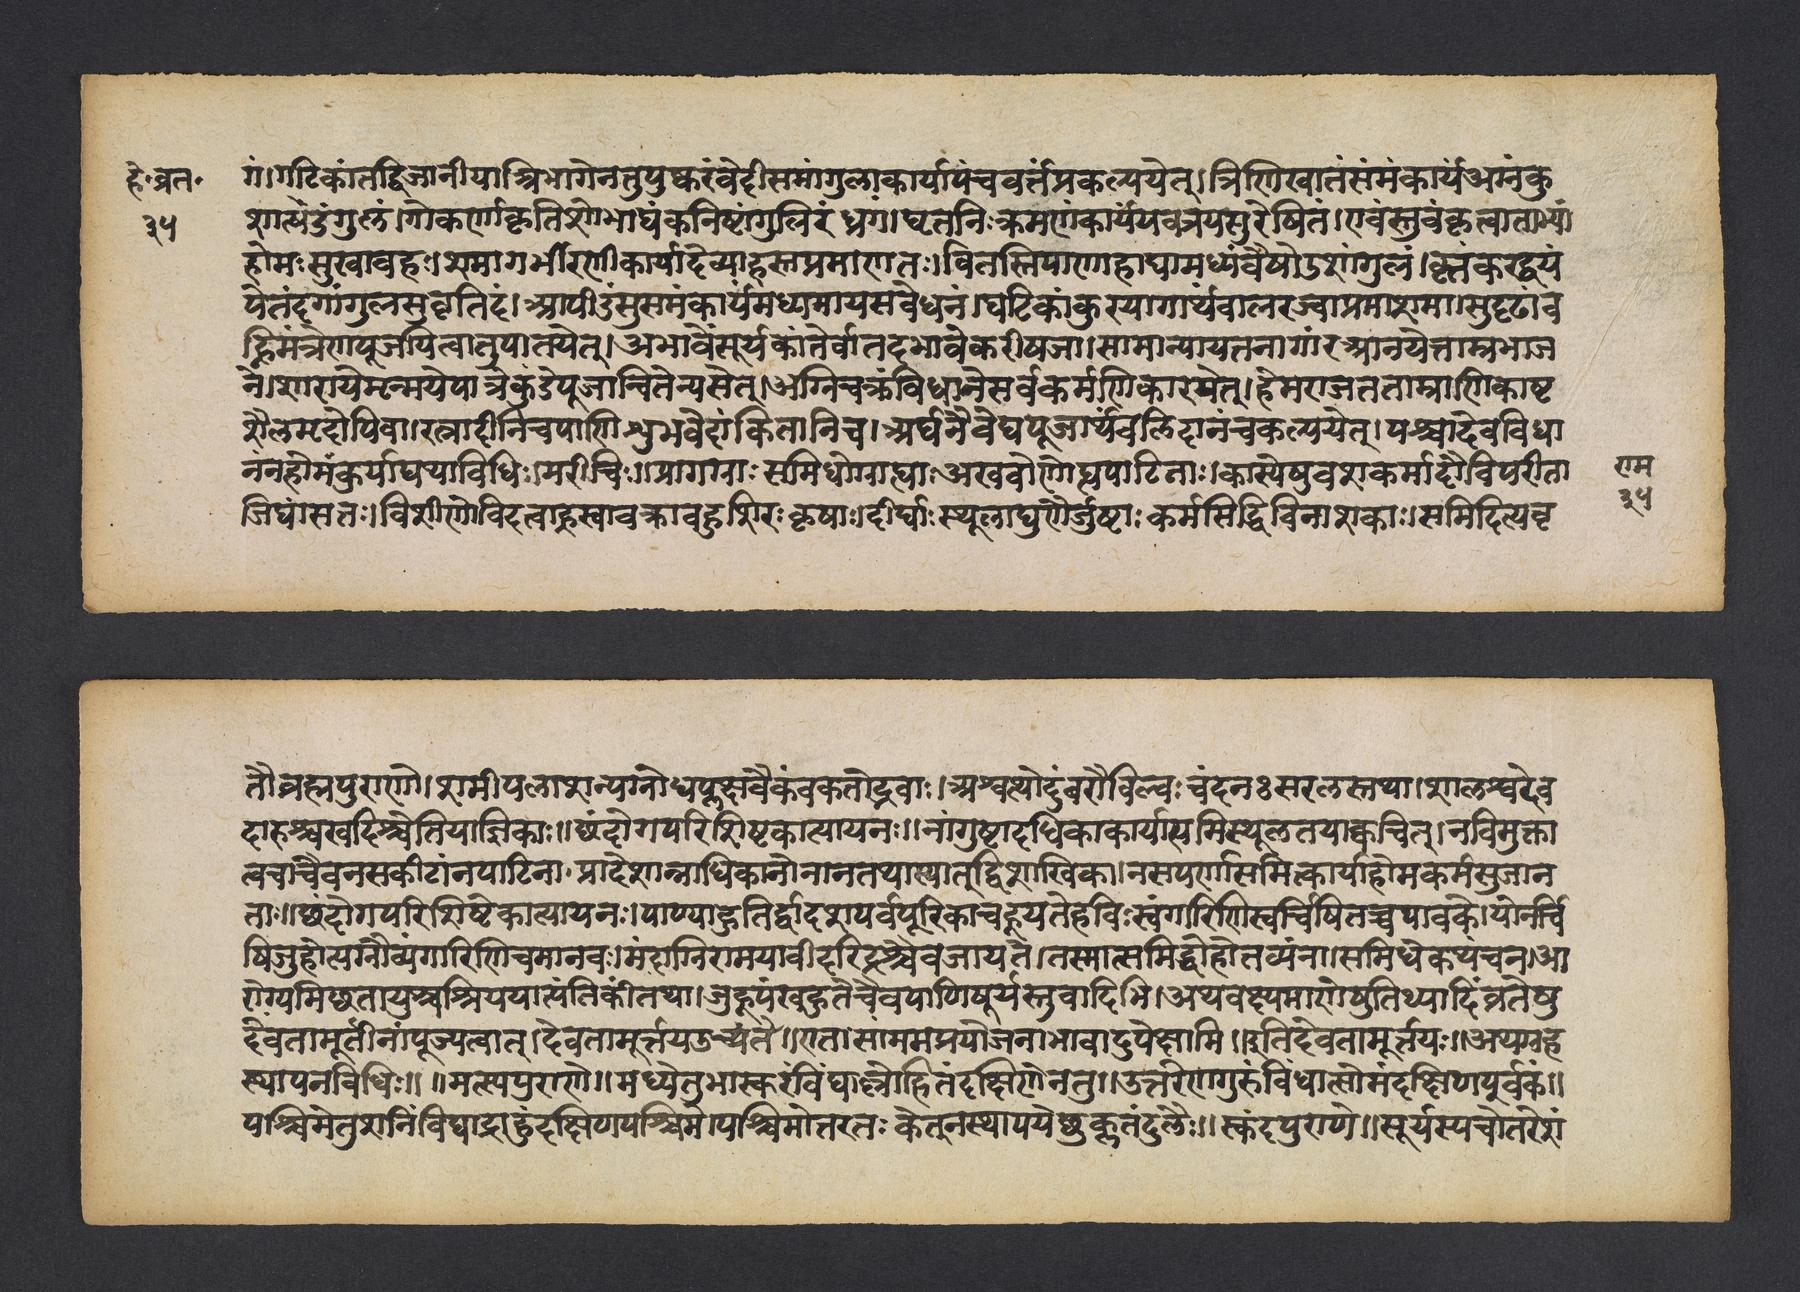 हे॰व्रत॰
३५
गं।गटिकांतद्विजानीयात्रिभागेनतुपुष्करंवेदीसमांगुलाकार्यापंचवर्त्तंप्रकल्पयेत्।त्रिणिखातंसंमंकार्यंअग्नंकु
होमःसुखावहः।शमागर्भीरणीकार्यादैव्याहस्तप्रमाणतः।वितस्तिपाणाहाघामध्यंवैषोडशांगुलं।कृतंकरद्वयं
हिमंत्रेणपूजयित्वातुपातयेत्।अभावेसूर्यकांतेर्वातदभावेकरीषजा।सामान्यायतनागांरआनयेत्ताम्रभाज
ने।शरायेमृन्मयेपात्रेकुंडेपूजान्वितेन्यसेत्।अग्निचक्रंविधानेसर्वकर्मणिकारयेत्।हेमराजतताम्राणिकाष्ट
शैलमृदोपिवा।रत्नादीनिचपाणिशुभवेदांकितानिच।अर्घनैवेद्यपूजार्थंबलिदानंचकल्पयेत्।पश्चादेवविधा
नंनहोमंकुर्याद्यथाविधिः।मरीचिः।।प्रागग्राःसमिधोग्राह्याःअखवोणोत्घपाटिताः।काम्येषुवशकर्मादौविपरीता
जिघांसतः।विशीर्णाविदत्वाह्रस्वावक्रावहुशिरःकृषाः।दीर्घाःस्थूलाघुणैर्जुष्टाःकर्मसिद्धिविनाशकाः।समिदित्यनृ
राम
३५
तौब्रह्मपुराणे।शमीपलाशन्यग्रोधप्लक्षवैकंकतोद्भवाः।अश्वत्थोदुंबरौविल्वःचंदनःसरलस्तथा।शालश्चदेव
दारुश्चखदिश्चेतियाज्ञिकाः॥छंदोगपरिशिष्टकात्यायनः॥नांगुष्टादधिकाकार्यासमित्स्थूलतयाक्वचित्।नविमुक्ता
त्वचाचैवनसकीटांनपाटिना।प्रादेशान्नाधिकानोनानतथास्यात्द्विशाखिका।नसपर्णासमित्कार्याहोमकर्मसुजान
ताः॥छंदोगपरिशिष्टेकात्यायनः।पाण्याहुतिर्द्वादशपर्वपूरिकाचहूयतेहविःस्वंगारिणिस्वर्चिषितच्चपावके।योनर्चि
षिजुहोत्यग्नौव्यंगारिणिचमानवः।मंदाग्निरामयावीदरिद्रश्चैवजायते।तस्मात्समिद्धेहोतव्यंना।समिधेकथंचन।आ
रोग्यमिछतायुश्चश्रियंयात्यंतिकींतथा।जुहूषंखहुतेचैवपाणिषूर्यस्तुवादिभि।अथवक्ष्यमाणेषुतिथ्यादिव्रतेषु
देवतामूर्तीनांपूज्यत्वात्।देवतामूर्त्तयउच्यंते॥एतासांममप्रयोजनाभावादुपेक्षामि॥इतिदेवतामूर्त्तयः॥अथग्रह
स्थापनविधिः॥॥मत्स्यपुराणे॥मध्येतुभास्करंविंद्याल्लोहितंदक्षिणेनतु॥उत्तरेणगुरुंविंधात्सोमंदक्षिणपूर्वकं॥
पश्चिमेतुशनिंविद्याद्राहुंदक्षिणपश्चिमे।पश्चिमोत्तरतःकेतुनस्थापयेछुक्लतंदुलैः॥स्कंदपुराणे॥सूर्यस्यचोत्तरेशं